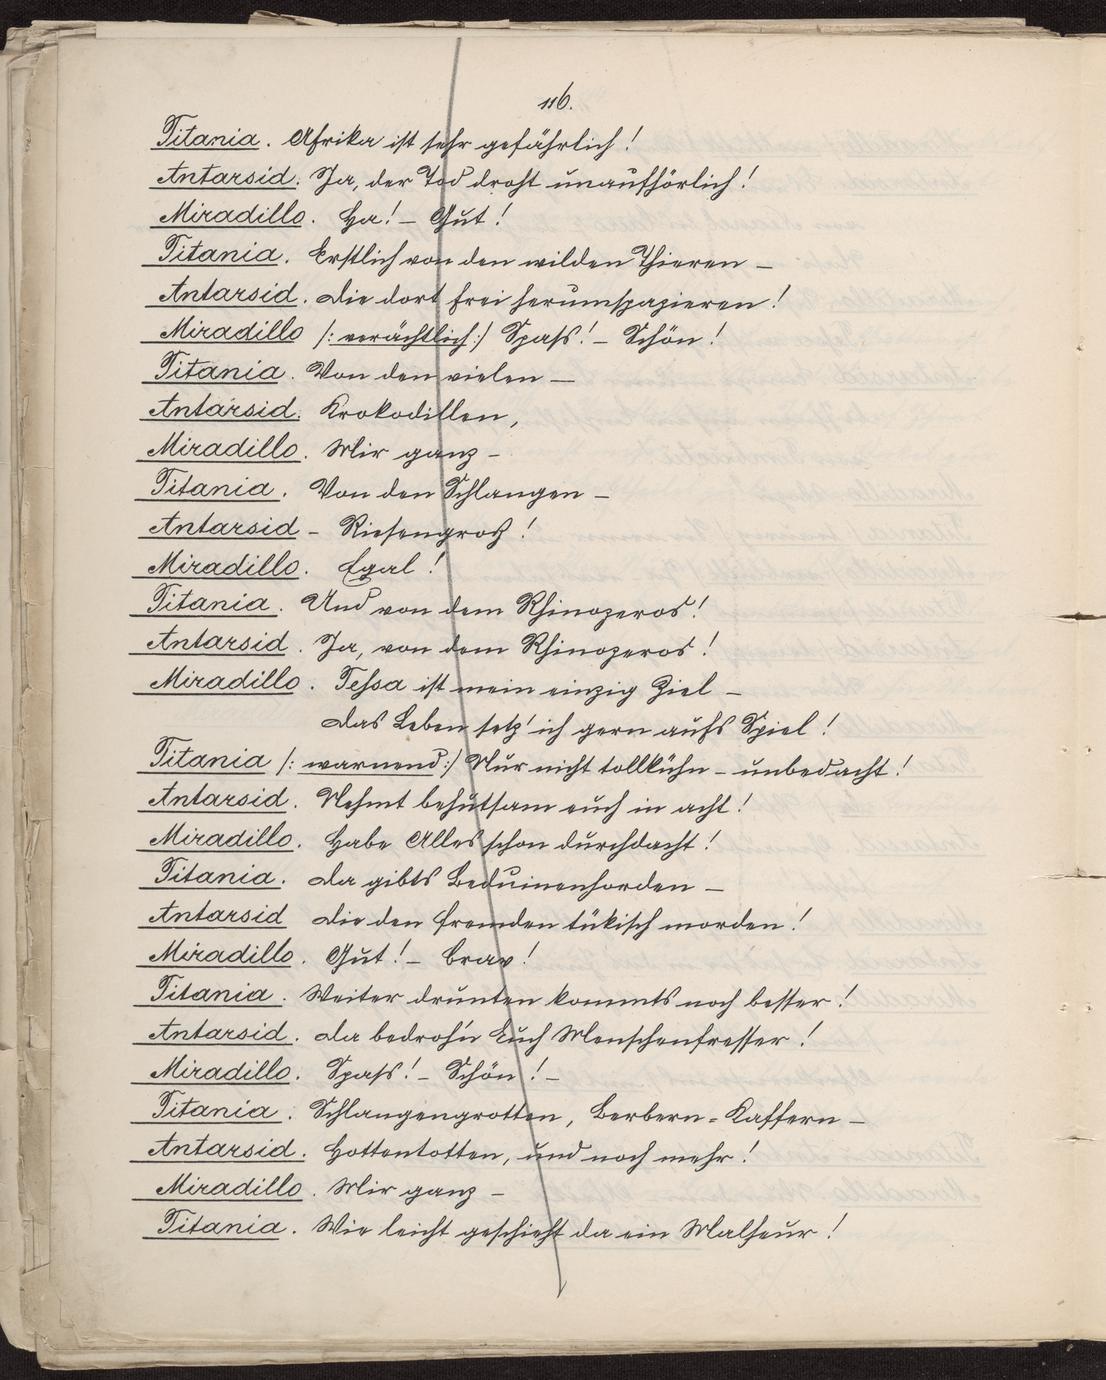 116.
Titania. Afrika ist sehr gefährlich!
Antarsid. Ja, der Tod droht unaufhörlich!
Miradillo. Ha! – Gut!
Titania. Erstlich von den wilden Thieren –
Antarsid. Die dort frei herumspazieren!
Miradillo /: verächtlich :/ Spaß! – Schön!
Titania. Von den vielen –
Antarsid. Krokodillen,
Miradillo. Mir ganz –
Titania. Von den Schlangen –
Antarsid – Riesengroß!
Miradillo. Egal!
Titania. Und von dem Rhinozeros!
Antarsid. Ja, von dem Rhinozeros!
Miradillo. Tessa ist mein einzig Ziel –
Das Leben setz' ich gern aufs Spiel!
Titania /: warnend :/ Nur nicht tollkühn – unbedacht!
Antarsid. Nehmt behutsam euch in acht!
Miradillo. Habe Alles schon durchdacht!
Titania. Da gibts Beduinenhorden –
Antarsid Die den Fremden tükisch morden!
Miradillo. Gut! – Brav!
Titania. Weiter drunten kommts noch besser!
Antarsid. Da bedroh'n Euch Menschenfresser!
Miradillo. Spaß! – Schön! –
Titania. Schlangengrotten, Berbern = Kaffern –
Antarsid. Hottentotten, und noch mehr!
Miradillo. Mir ganz –
Titania. Wie leicht geschieht da ein Malheur!